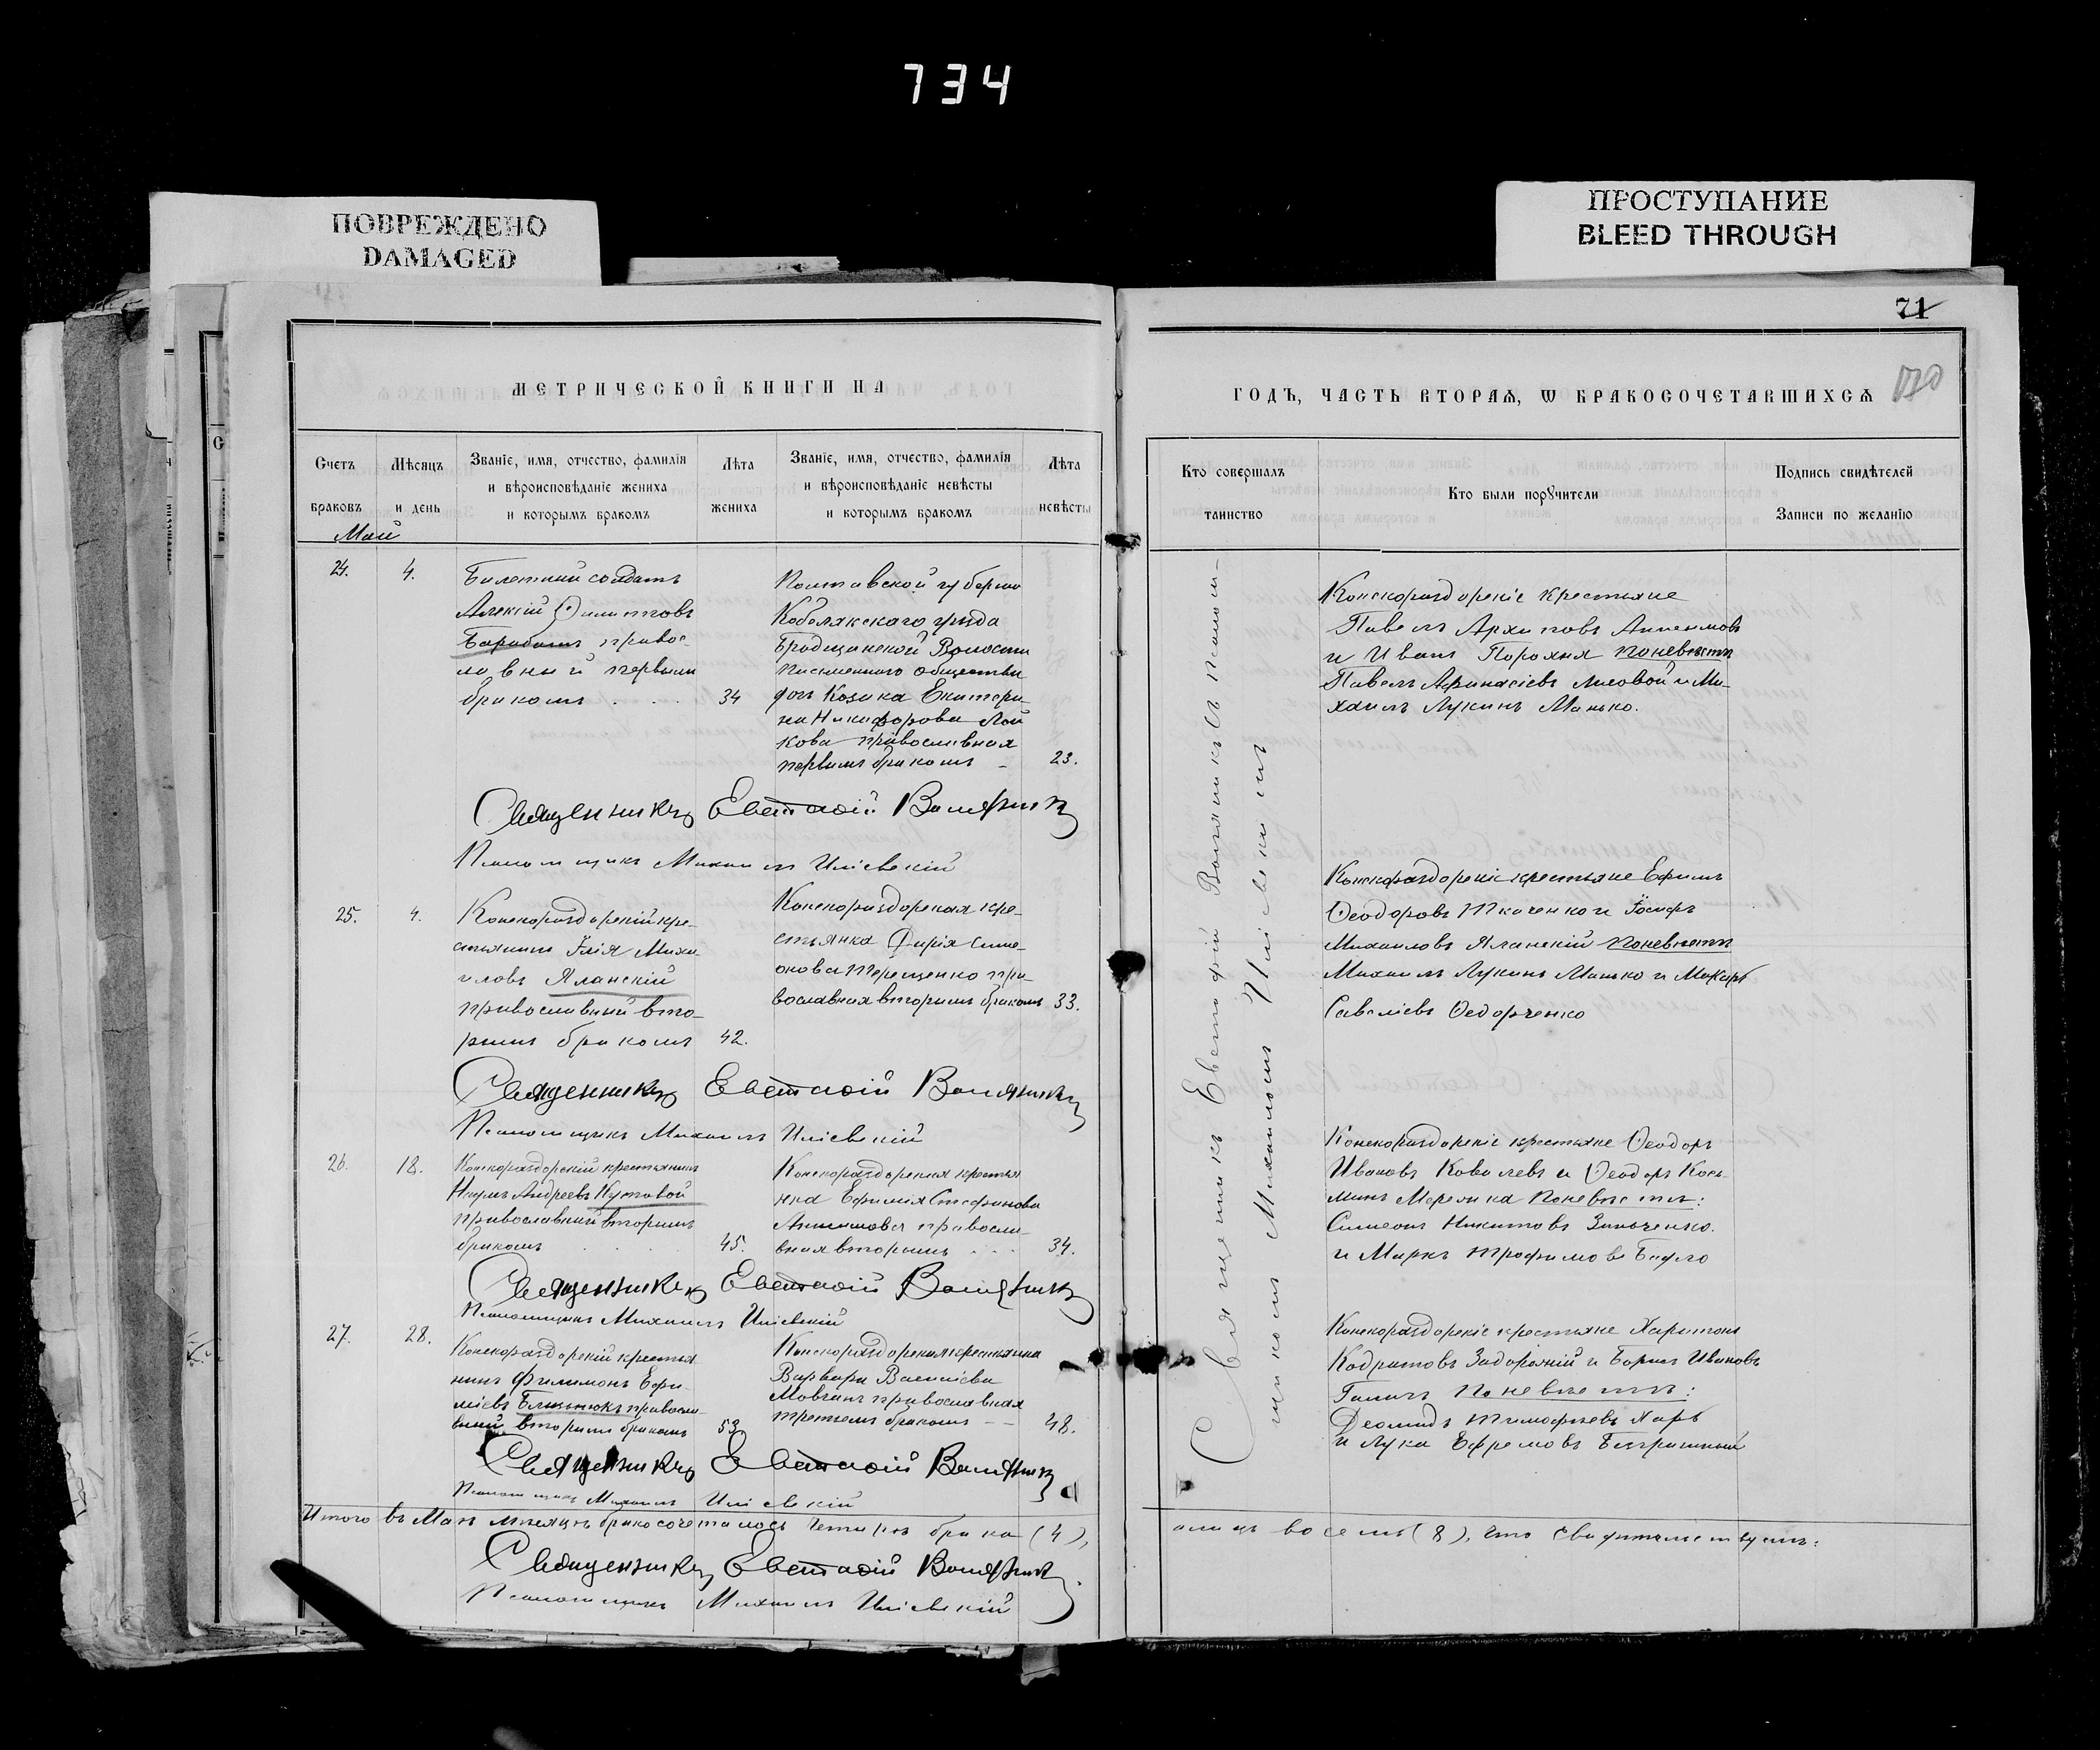 734
ПОВРЕЖДЕНО
DAMAGED
ПРОСТУПАНИЕ
BLEED THROUGH
71
МЕТРИЧЕСКОЙ КНИГИ НА
Счетъ браковъ
Мѣсяцъ и день
Званіе, имя, отчество, фамилія
и вѣроисповѣданіе жениха
и которымъ бракомъ
Лѣта жениха
Званіе, имя, отчество, фамилія
и вѣроисповѣданіе невѣсты
и которымъ бракомъ
Лѣта невѣсты
Май
24. 4.
Билетний солдатъ
Алексій Филиповъ
правос-
лавний первымъ
бракомъ 34
Полтавской губерніи
Кобелякскаго уѣзда
Бродщанской Волости
Письменнаго общества
дочь Козака Екатери-
на Никифорова Лой
кова православная
первымъ бракомъ 23.
Священникъ Евстафій
Псаломщикъ Михаилъ Илiевскій
25. 4.
Конскораздорскій кре-
стьянинъ Илія Миха-
иловъ Яланскій
православный вто-
рымъ бракомъ 42.
Конскораздорская кре-
стьянка Дарія Симе-
онова Терещенко пра-
вославная вторымъ бракомъ 33.
Священникъ Евстафій
Псаломщикъ Михаилъ Илiевскій
26. 18.
Конскораздорскій крестьянинъ
Наумъ Андреевъ Кутовой
православный вторымъ
бракомъ 45.
Конскораздорская крестья
нка Ефимія Стефанова
православ-
ная вторымъ 34.
Священникъ Евстафій
Псаломщикъ Михаилъ Илiевскій
27. 28.
Конскораздорскій крестья
нинъ Филимонъ Ефи-
міевъ православ-
ный вторымъ бракомъ 53
Конскораздорская крестьянка
Варвара Василіева
Мовчанъ православная
третьимъ бракомъ 48.
Священникъ Евстафій
Псаломщикъ Михаилъ Илiевскій
Итого въ Маѣ мѣсяцѣ бракосочеталось четыре брака (4),
Священникъ Евстафій
Псаломщикъ Михаилъ Илiевскій
ГОДЪ, ЧАСТЬ ВТОРАѦ, Ѡ БРАКОСОЧЕТАВШИХСѦ
170
Кто совершалъ таинство
Кто были порꙋчители
Подпись свидѣтелей
Записи по желанію
Священникъ Евстафій съ псалом-
щикомъ Михаиломъ Илiевскимъ
Конскораздорскіе крестьяне
Павелъ Архиповъ
и Иванъ Порохня поневѣстѣ
Павелъ Афанасіевъ Лисовой и Ми-
хаилъ Лукинъ Манько.
Конскораздорскіе крестьяне Ефимъ
Ѳеодоровъ Ткаченко и Іосифъ
Михаиловъ Яланскій поневѣстѣ
Михаилъ Лукинъ Манько и Макаръ
Савеліевъ Ѳедорченко
Конскораздорскіе крестьяне Ѳеодоръ
Ивановъ Ковалевъ и Ѳеодоръ Кось-
минъ Мережка поневѣстѣ:
Симеонъ Никитовъ Зинченко.
и Маркъ Трофимовъ
Конскораздорскіе крестьяне Харитонъ
Кодратовъ Задорожній и Борисъ Ивановъ
поневѣстѣ:
Деомидъ Тимофѣевъ Харь
и Лука Ефремовъ
а лицъ восемь (8), что свидѣтельствуемъ: